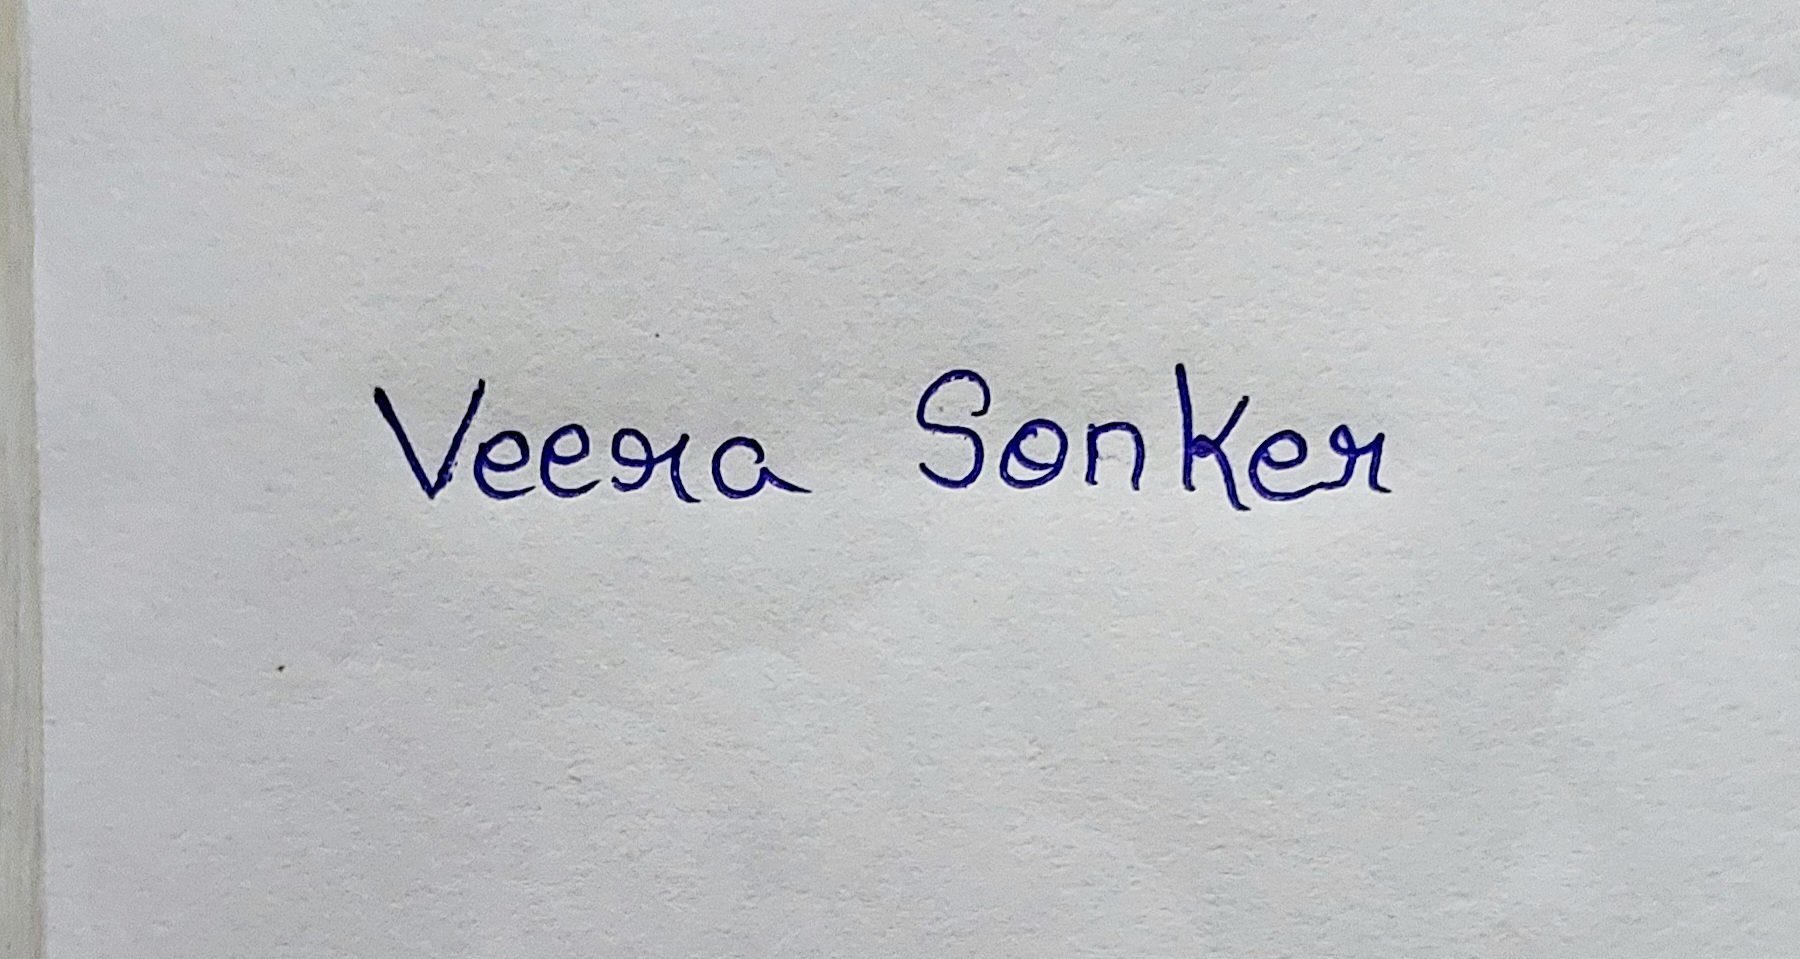 Veera Sonker